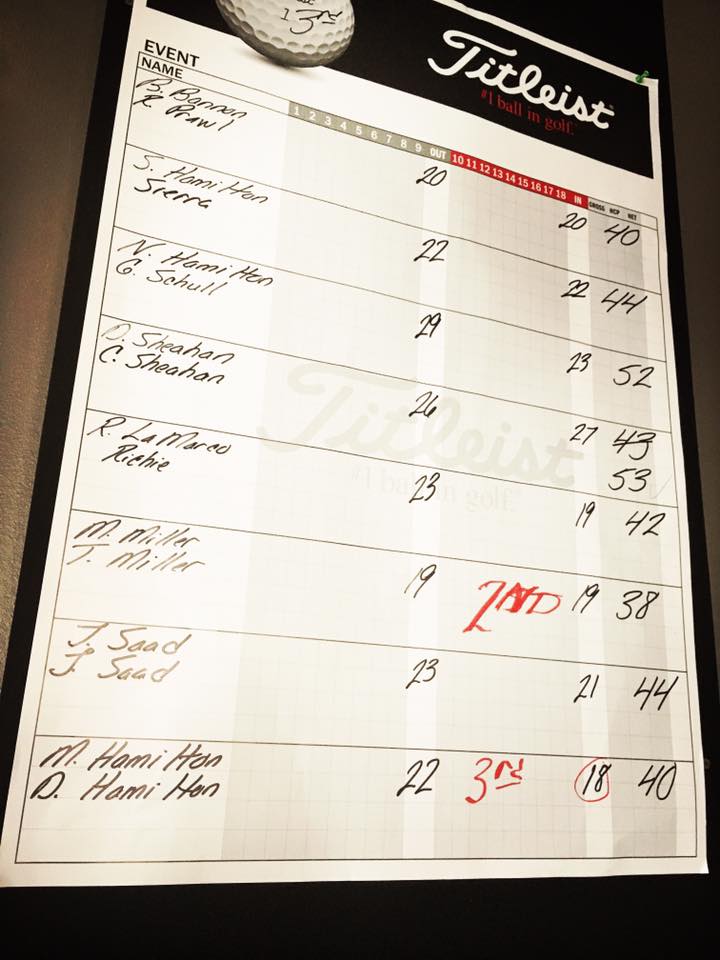 3rd
Titleist
#1 ball in golf.
EVENT
NAME
1 2 3 4 5 6 7 8 9 OUT 10 11 12 13 14 15 16 17 18 IN GROSS HCP NET
B. Bannan
R Prawl
20 20 40
S. Hamilton
Sierra
22 22 44
N. Hamilton
G. Schull
29 23 52
D. Sheahan
C. Sheahan
26 27 43
53
R. LaMarco
Richie
23 19 42
M. Miller
T. Miller
19 2ND 19 38
J. Saad
J. Saad
23 21 44
M. Hamilton
D. Hamilton
22 3rd 18 40
Titleist
#1 ball in golf.